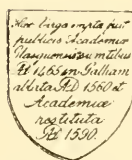 Hæc virga empta fuit
publicis Academiæ
Glasguensis sumptibus
AD 1465 in Galliam
ablata AD 1560 et
Academiæ
restituta
AD 1590.